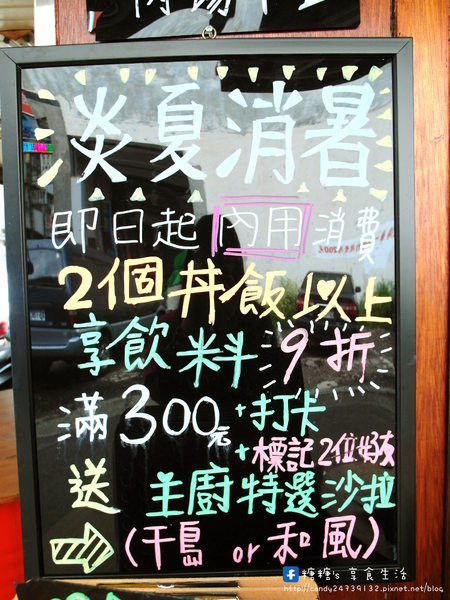 淡夏消暑
即日起內用消費
2個丼飯以上
享飲料9折
滿300元+打卡
+標記2位好友
送主廚特選沙拉
(千島 or 和風)
糖糖's 享食生活
http://candy24739132.pixnet.net/blog